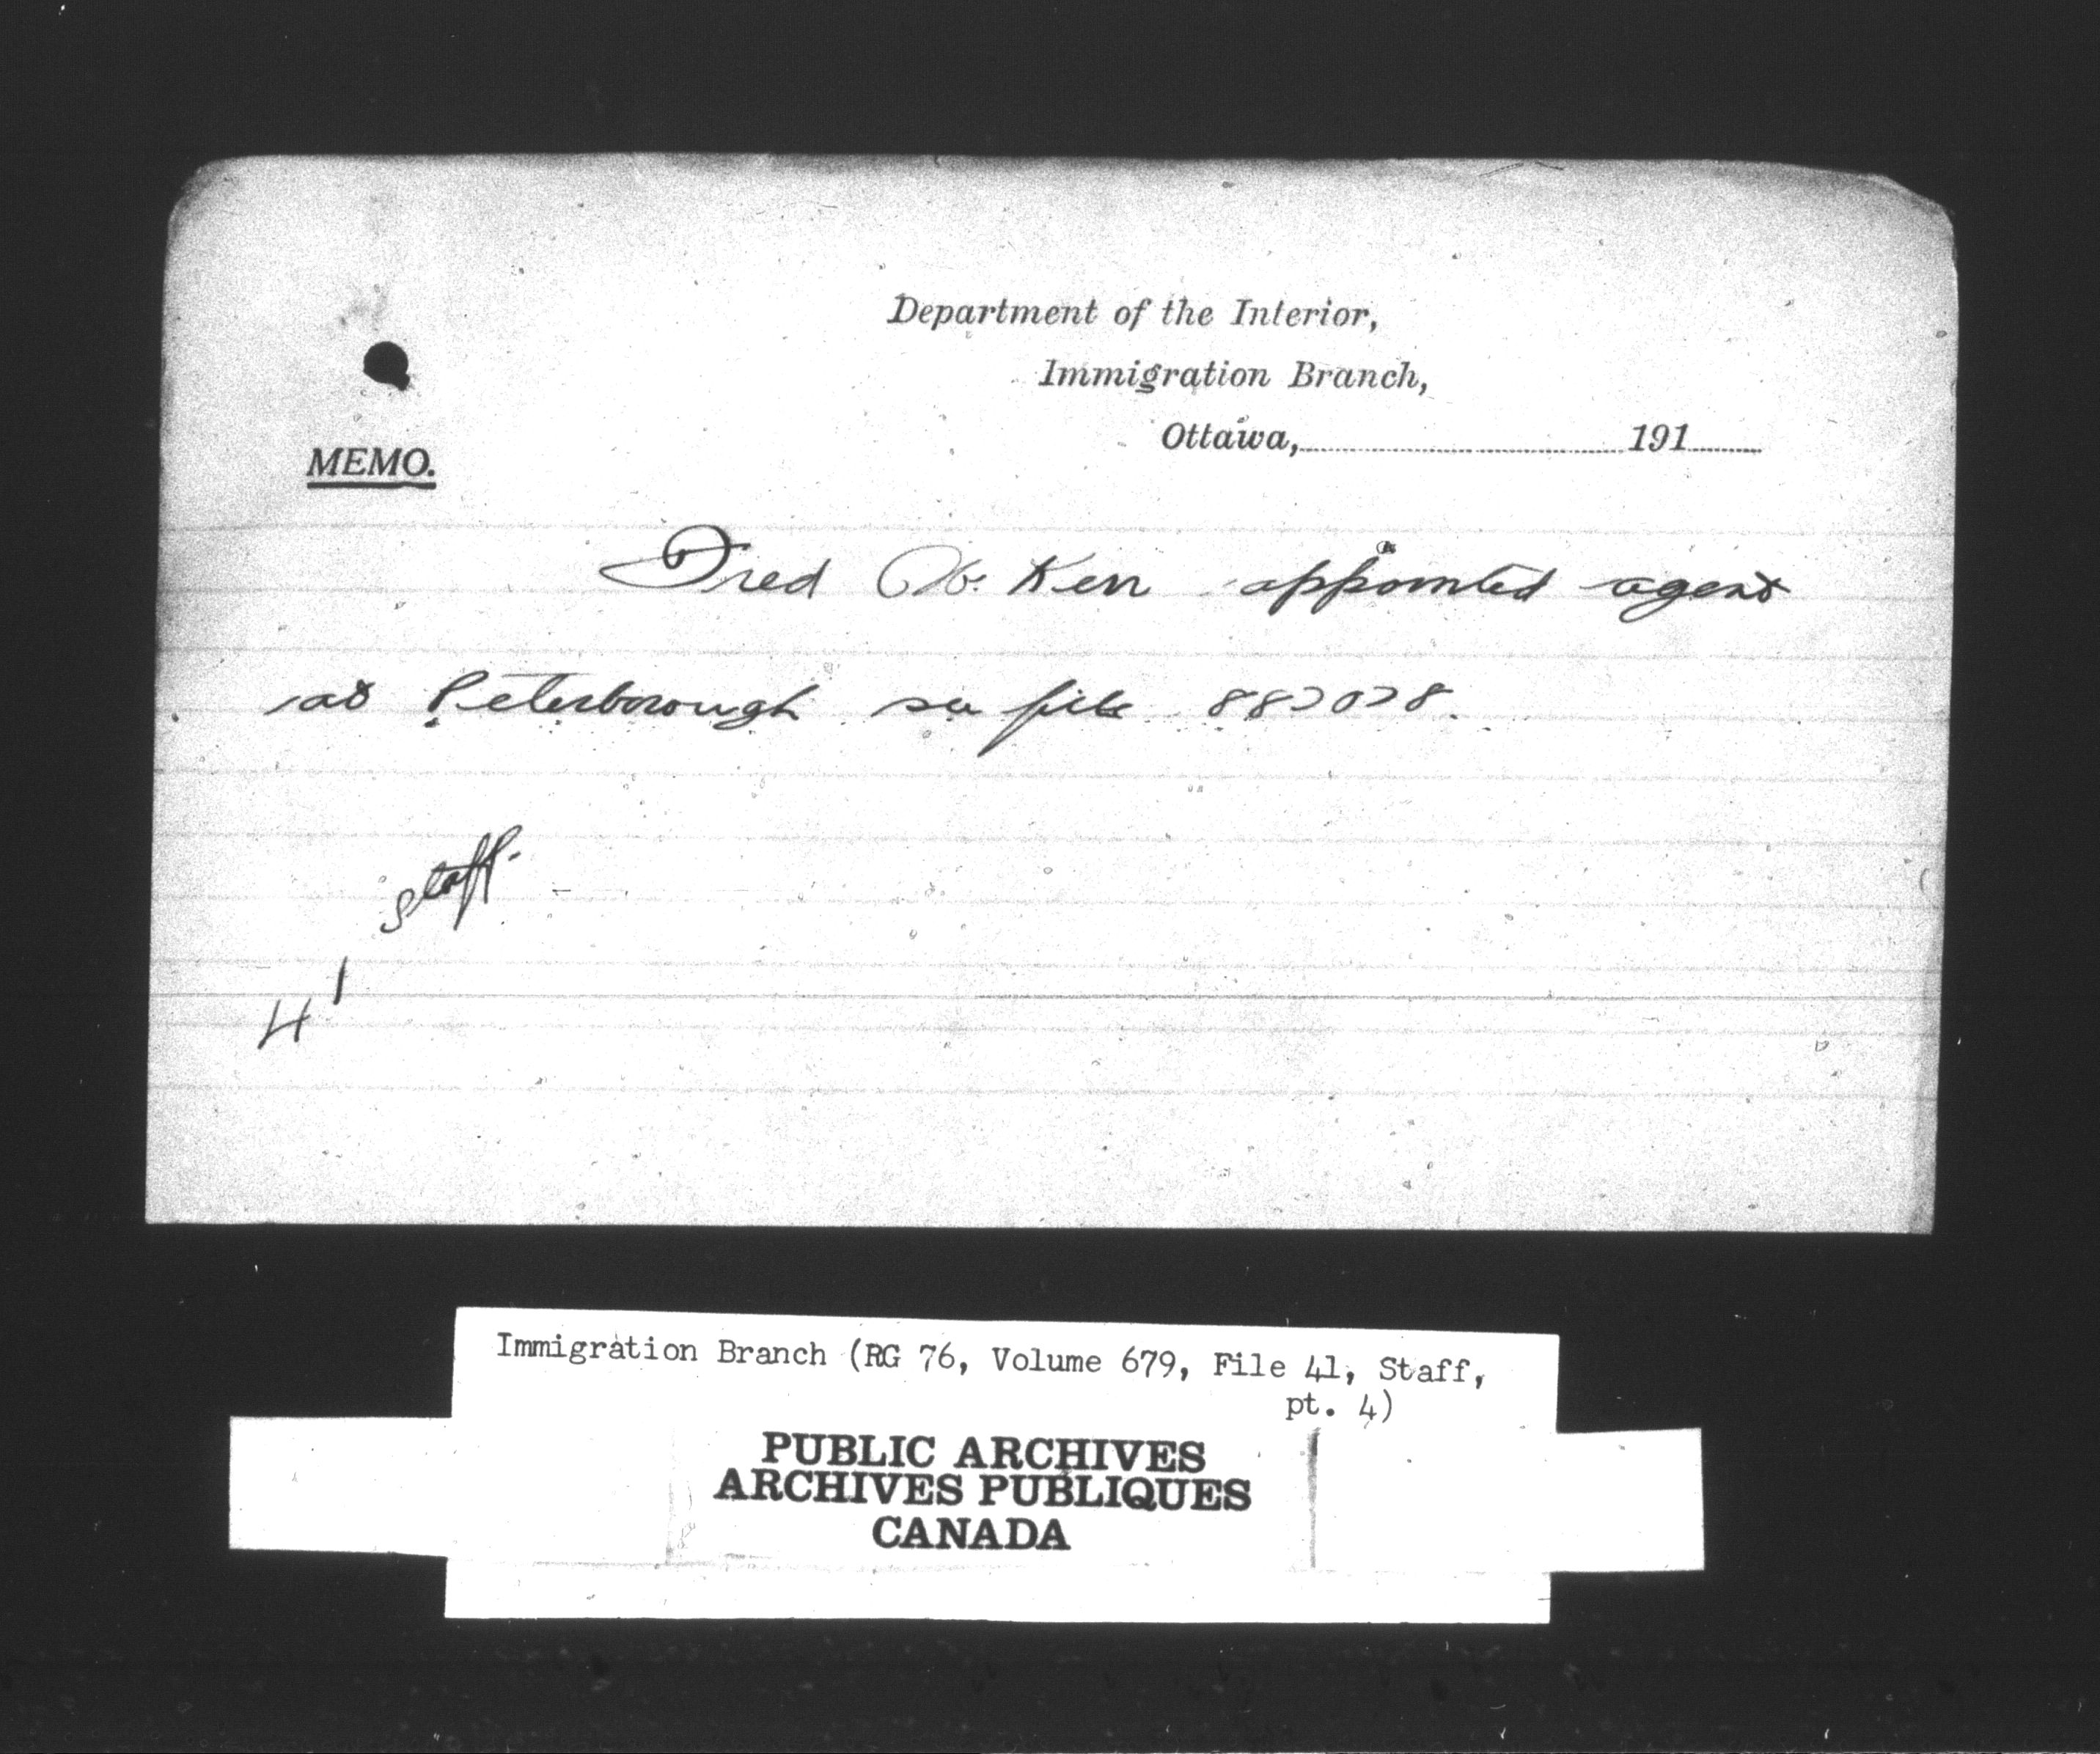 Department of the Interior,
Immigration Branch,
Ottawa, 191
MEMO.
Fred Kerr appointed agent
at Peterborough see file 882028.
Staff.
41
Immigration Branch (RG 76, Volume 679, File 41, Staff,
pt. 4)
PUBLIC ARCHIVES
ARCHIVES PUBLIQUES
CANADA